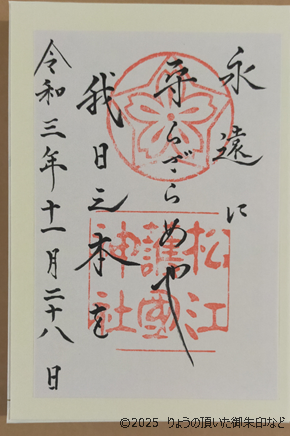 永遠に
守らざらめや
我日之本を
令和三年十一月二十八日
松江
護國
神社
©2025 りょうの頂いた御朱印など